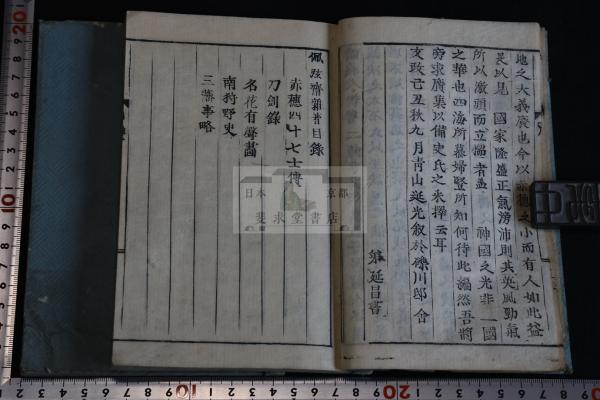 地之大義廢也今以赤穗之小而有人如此益
足以見　國家隆盛正氣滂沛則其英風勁氣
所以激頑而立懦者蓋　神國之光非一國
之華也四海所慕婦豎所知何待此編然吾將
旁求廣集以備史氏之采擇云耳
文政己丑秋九月靑山延光叙於礫川邸舍
弟延昌書
佩弦齋雜著目錄
赤穗四十七士傳
刀劍錄
名花有聲畵
南狩野史
三藩事略
日本 京都
斐求堂書店
20
10
10
20